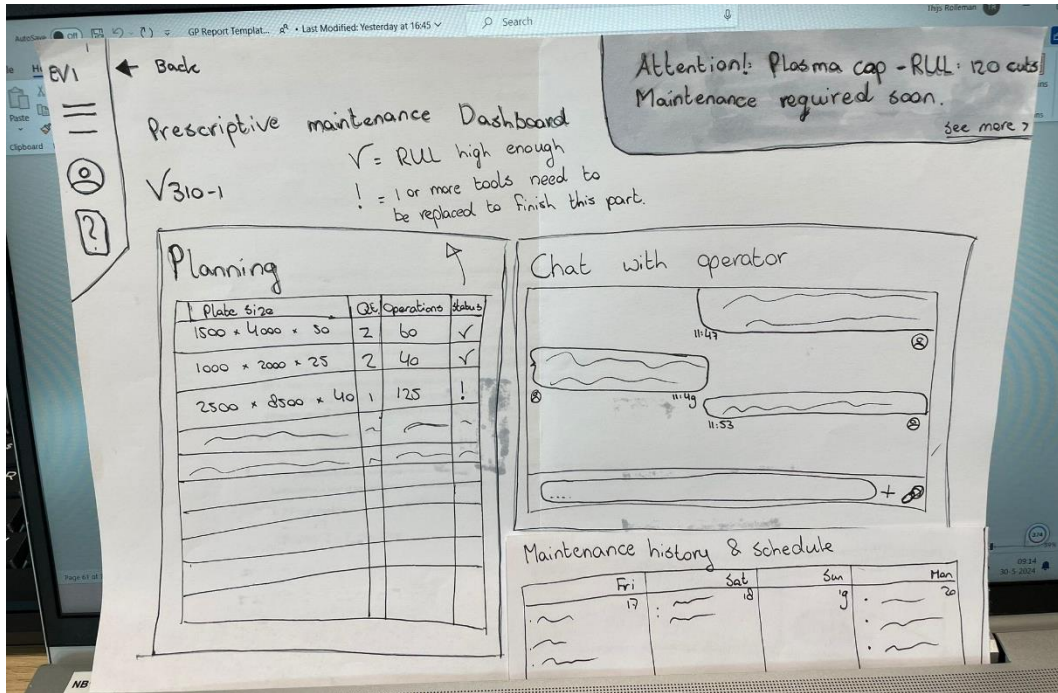 AutoSave
Off
GP Report Templat... • Last Modified: Yesterday at 16:45
Search
Thijs Rolleman
Paste
Clipboard
EVI
← Back
Attention!: Plasma cap - RUL: 120 cuts
Maintenance required soon.
See more >
Prescriptive maintenance Dashboard
V310-1
√ = RUL high enough
! = 1 or more tools need to
be replaced to finish this part.
?
Planning
Plate size Qt. Operations Status
1500 × 4000 × 30 2 60 √
1000 × 2000 × 25 2 40 √
2500 × 8500 × 40 1 125 !
Chat with operator
11:47
11:49
11:53
.... +
Maintenance history & schedule
Fri Sat Sun Mon
17 18 19 20
Page 61 of
09:14
30-5-2024
NB